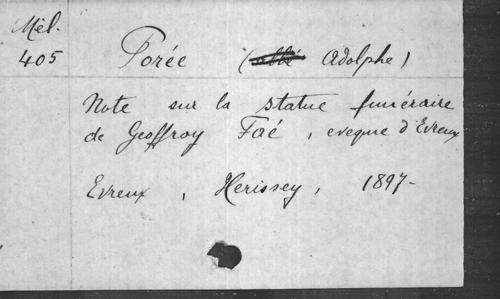 Mél.
405
Porée (abbé Adolphe)
Note sur la statue funéraire
de Geoffroy Faé, eveque d'Evreux
Evreux, Herissey, 1897-